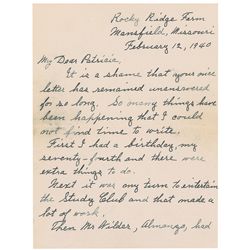 Rocky Ridge Farm
Mansfield, Missouri
February 12, 1940
My Dear Patricia,
It is a shame that your nice
letter has remained unanswered
for so long. So many things have
been happening that I could
not find time to write.
First I had a birthday, my
seventy-fourth and there were
extra things to do.
Next it was my turn to entertain
the Study Club and that made a
lot of work.
Then Mr Wilder, Almanzo, had